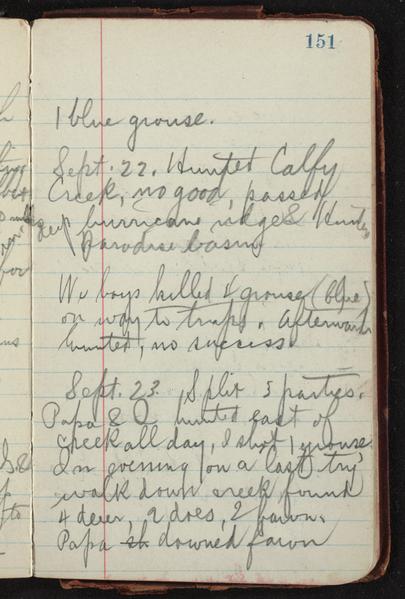 151
1 blue grouse.
Sept. 22. Hunted Calfy
Creek, no good, passed
deer hurricane ridge & Hunted
Paradise basin
We boys killed 4 grouse (blue)
on way to traps. Afterwards
hunted, no success
Sept. 23. Split 3 parties.
Papa & O. hunted east of
creek all day, I shot 1 grouse
In evening on a last try
walk down creek found
4 deer, 2 does, 2 fawns
Papa sh downed fawn